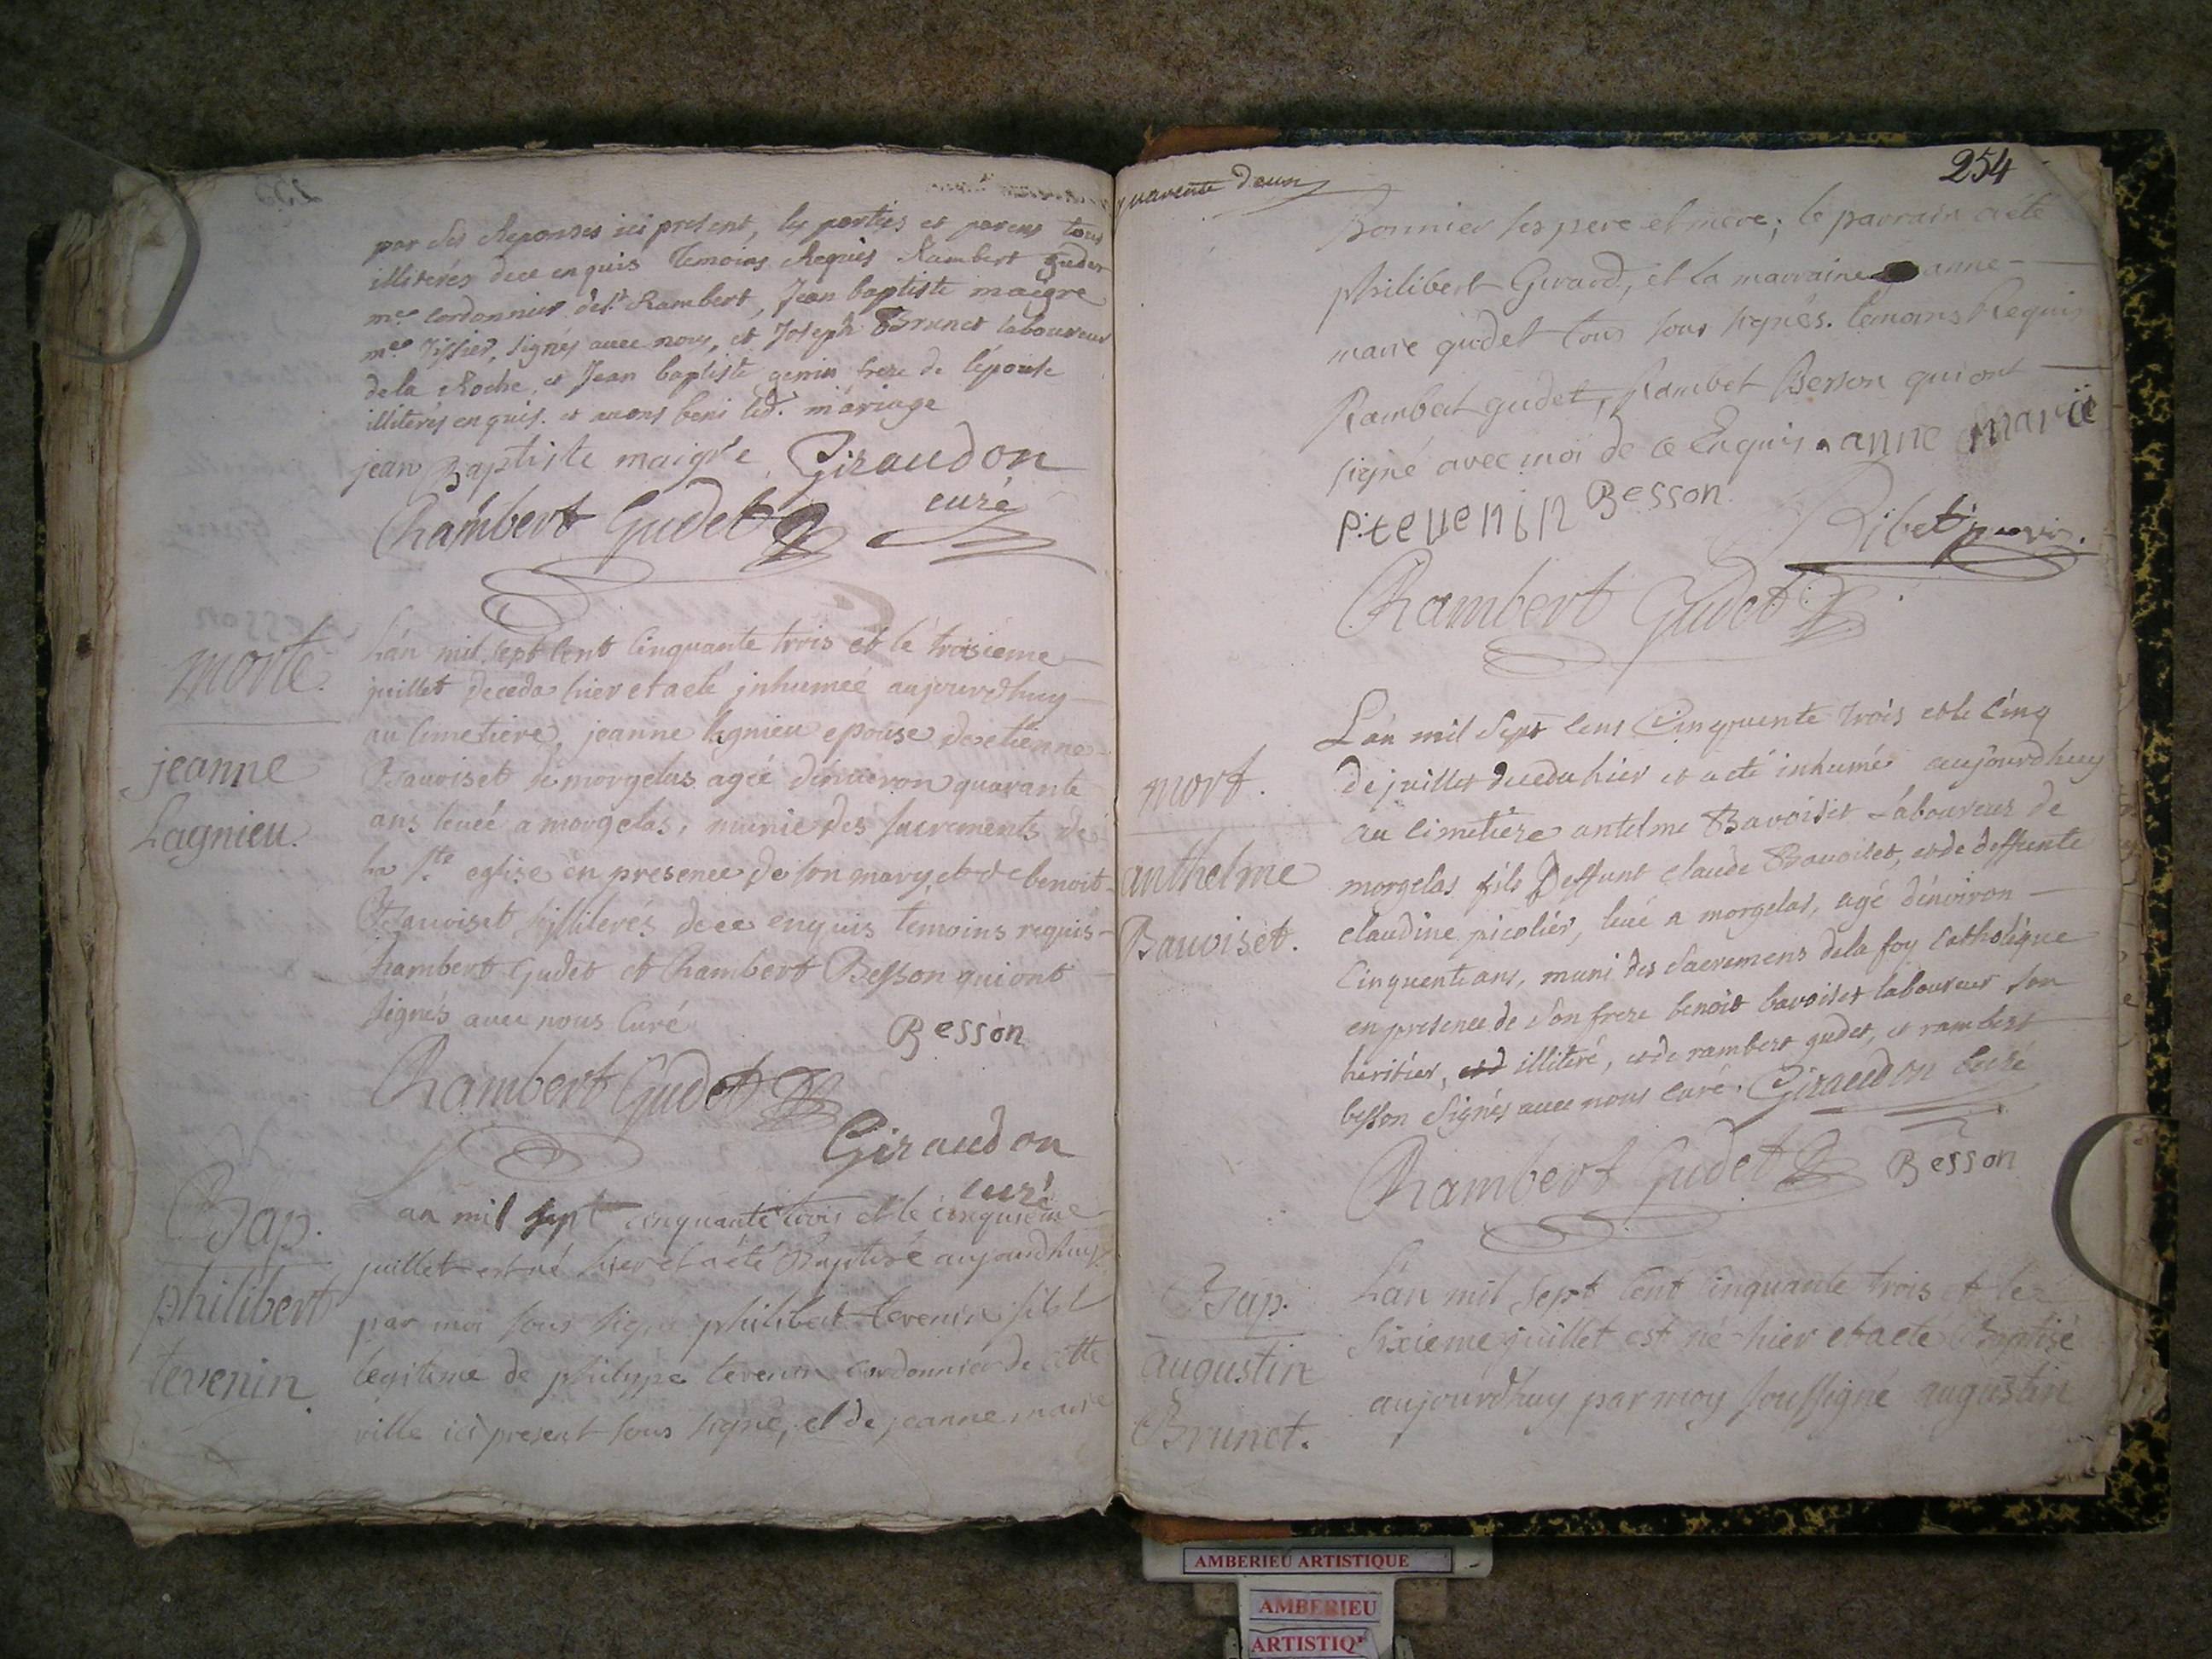 par ses Reponses ici present, les parties et parens tous
illiterés dece enquis Temoins Requis Rambert gudet
me. Cordonnier de St. Rambert, Jean baptiste maigre
me. Tissier, signés avec nous, et Joseph Brunet laboureur
dela Roche et Jean baptiste genin frere de l'épouse
illiterés enquis. et avons beni led. mariage
jean Baptiste maigre Giraudon
Rambert Gudet curé
morte.
jeanne
Lagnieu.
L'an mil sept cent cinquante trois et le troisieme
juillet deceda hier et a eté jnhumée aujourdhuy
au Cimetiere jeanne lagnieu epouse de etienne
Bauviset de morgelas agée d'environ quarante
ans levée a morgelas, munie des sacrements de
la Ste eglise en presence de son mary, et de benoit
Bauviset illiterés de ce enquis temoins requis
Rambert Gudet et Rambert Besson qui ont
signés avec nous Curé
Besson
Rambert Gudet
Giraudon
curé
Bap.
philibert
tevenin
an mil sept cinquante trois et le cinquieme
juillet est né hier et a été Baptisé aujourdhuy
par moi sous signé philibert tevenin fils
legitime de philippe tevenin cordonnier de cette
ville ici present sous signé, et de jeanne marie
quarente deux
254
Bonnier ses pere et mere; le parrain a été
philibert Girard, et la marraine anne
marie gudet tous sous signés. temoins Requis
Rambert gudet, Rambert Besson qui ont
signé avec moi de ce Enquis anne marie
p. tevenin Besson
Ribet
Rambert Gudet
mort.
anthelme
Bauviset.
L'an mil sept cens Cinquente trois et le Cinq
de juillet deceda hier et a eté inhumé aujourdhuy
au Cimetiere antelme Bavoiset Laboureur de
morgelas fils Deffunt claude Bavoiset, et de deffunte
claudine picolier, levé a morgelas, agé d'environ
Cinquente ans, muni des Sacremens dela foy Catholique
en presence de Son frere benoit bavoiset laboureur Son
heritier, illiteré, et de rambert gudet, et rambert
besson Signés avec nous curé. Giraudon curé
Rambert Gudet Besson
Bap.
augustin
Brunet.
L'an mil sept cent cinquante trois et le
sixieme juillet est né hier et a eté Baptisé
aujourdhuy par moy soussigné augustin
AMBERIEU ARTISTIQUE
AMBERIEU
ARTISTIQ